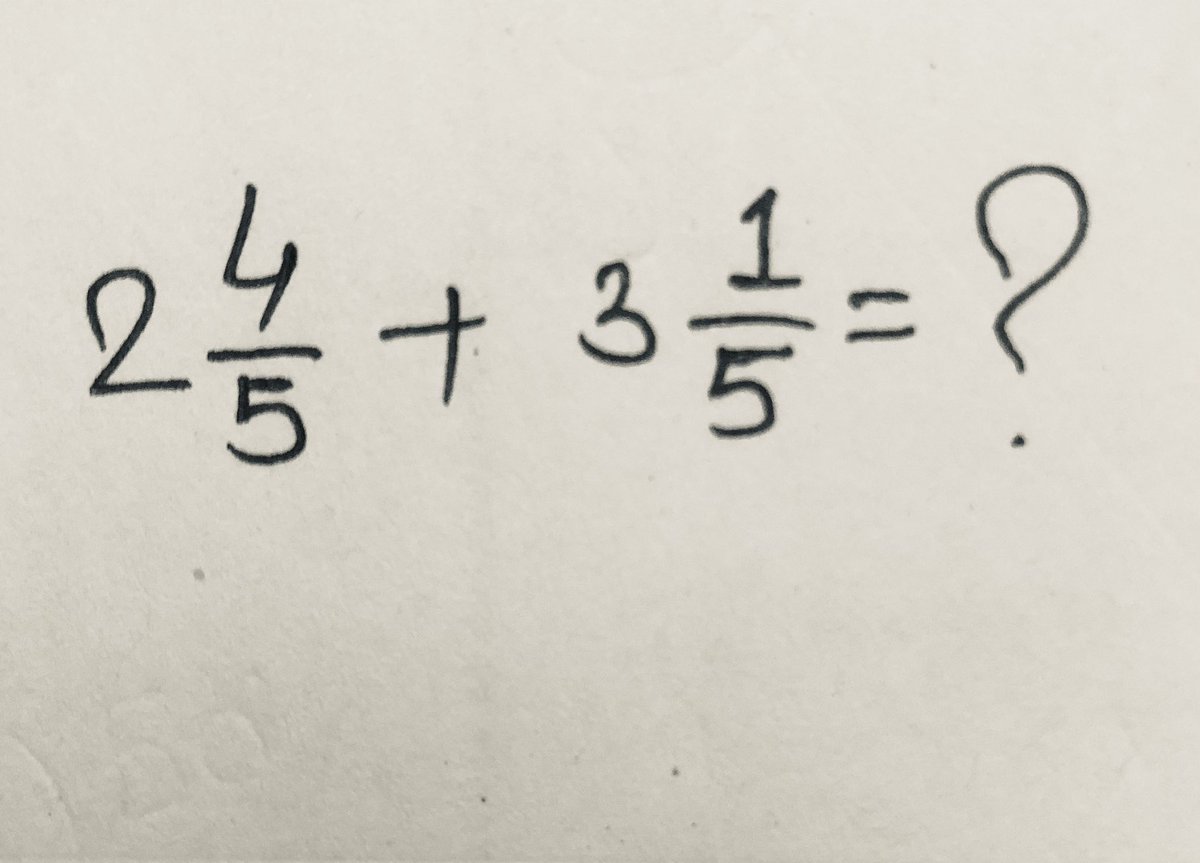 2 4/5 + 3 1/5 = ?